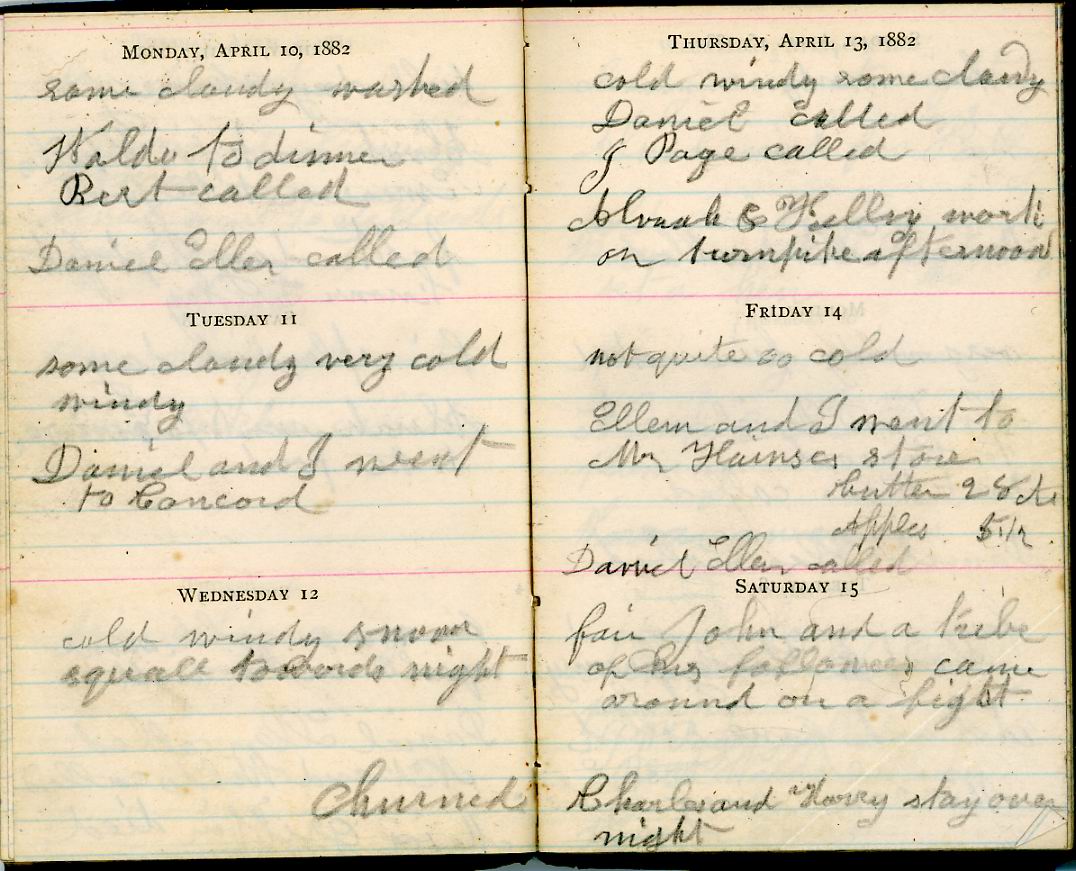 MONDAY, APRIL 10, 1882
some cloudy washed
Waldo to dinner
Bert called
Daniel Ellen called
TUESDAY 11
some cloudy very cold
windy
Daniel and I went
to Concord
WEDNESDAY 12
cold windy snow
squall towords night
Churned
THURSDAY, APRIL 13, 1882
cold windy some cloudy
Daniel called
J Page called
Alvah & work
on turnpike afternoon
FRIDAY 14
not quite so cold
Ellen and I went to
Mr store
butter 28 cts
Apples 5 1/2
Daniel Ellen called
SATURDAY 15
fair John and a tribe
of his followers came
around on a fight
Charles and Harry stay over
night